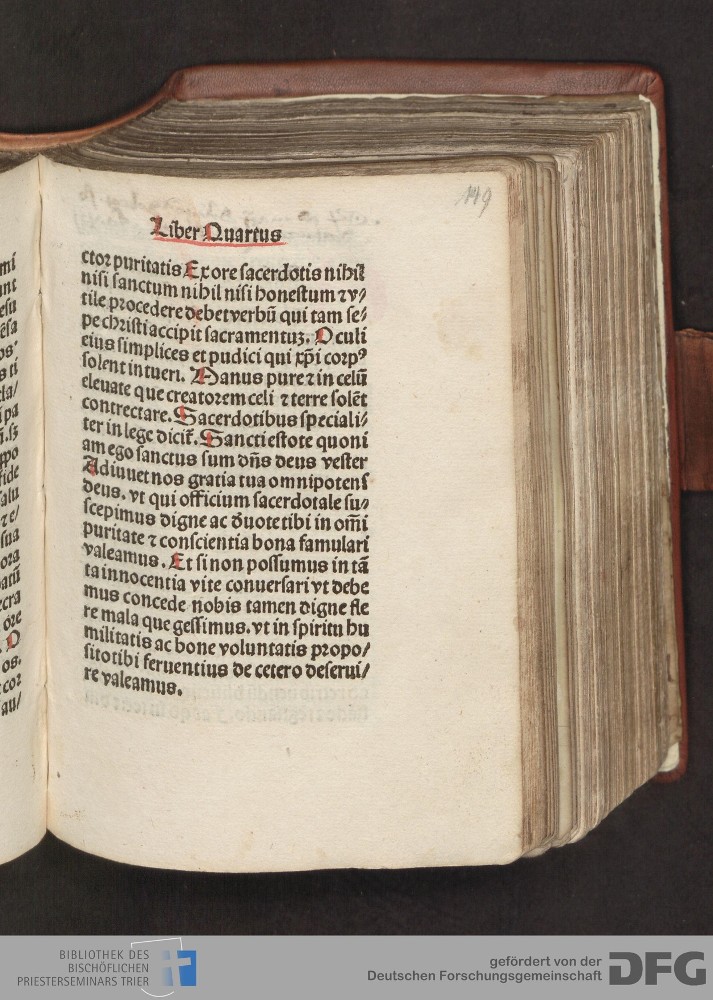 149
Liber Quartus
ctor puritatis Ex ore sacerdotis nihil
nisi sanctum nihil nisi honestum ⁊ v⸗
tile procedere debet verbū qui tam se⸗
pe christi accipit sacramentuꝫ. Oculi
eius simplices et pudici qui xp̄i corpꝰ
solent intueri. Manus pure ⁊ in celū
eleuate que creatorem celi ⁊ terre solēt
contrectare. Sacerdotibus speciali⸗
ter in lege dicit̄. Sancti estote quoni
am ego sanctus sum dn̄s deus vester
Adiuuet nos gratia tua omnipotens
deus. vt qui officium sacerdotale su⸗
scepimus digne ac d̄uote tibi in om̄i
puritate ⁊ conscientia bona famulari
valeamus. Et si non possumus in tā
ta innocentia vite conuersari vt debe
mus concede nobis tamen digne fle
re mala que gessimus. vt in spiritu hu
militatis ac bone voluntatis propo/
sito tibi feruentius de cetero deserui/
re valeamus.
BIBLIOTHEK DES
BISCHÖFLICHEN
PRIESTERSEMINARS TRIER
gefördert von der
Deutschen Forschungsgemeinschaft
DFG